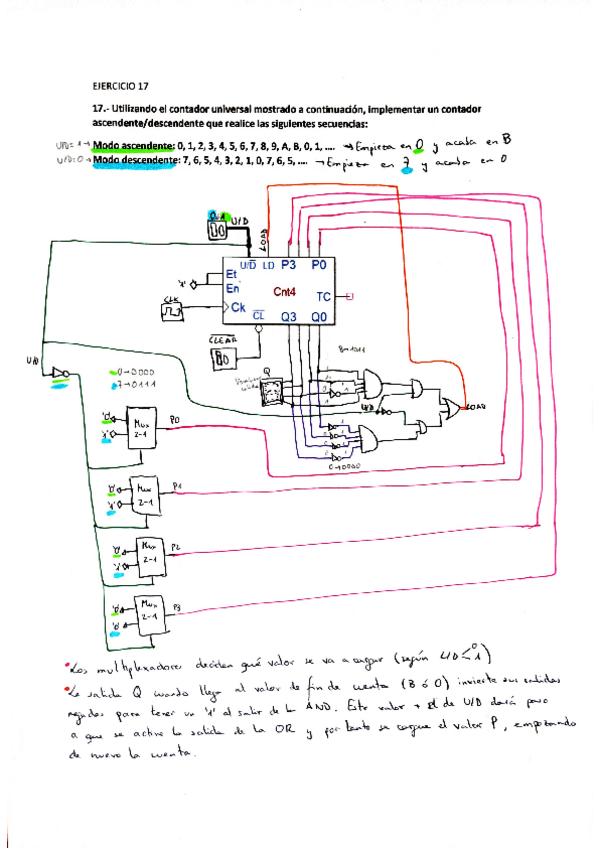 EJERCICIO 17
17.- Utilizando el contador universal mostrado a continuación, implementar un contador
ascendente/descendente que realice las siguientes secuencias:
U/D=1→ Modo ascendente: 0, 1, 2, 3, 4, 5, 6, 7, 8, 9, A, B, 0, 1, .... → Empieza en 0 y acaba en B
U/D=0→ Modo descendente: 7, 6, 5, 4, 3, 2, 1, 0, 7, 6, 5, .... → Empieza en 7 y acaba en 0
U/D
LOAD
U/D LD P3 P0
Et
En
Cnt4
TC
'1'
CLK
Ck
CL
Q3 Q0
CLEAR
B→1011
Q
U/D
0→0000
7→0111
U/D
LOAD
'0'
'1'
Mux
2-1
P0
0→0000
'0'
'1'
Mux
2-1
P1
'0'
'1'
Mux
2-1
P2
'0'
'0'
Mux
2-1
P3
• Los multiplexadores deciden qué valor se va a cargar (según U/D 0 1)
• La salida Q cuando llega al valor de fin de cuenta (B ó 0) invierte sus salidas
negadas para tener un '1' al salir de la AND. Este valor + el de U/D dará paso
a que se active la salida de la OR y por tanto se cargue el valor P, empezando
de nuevo la cuenta.